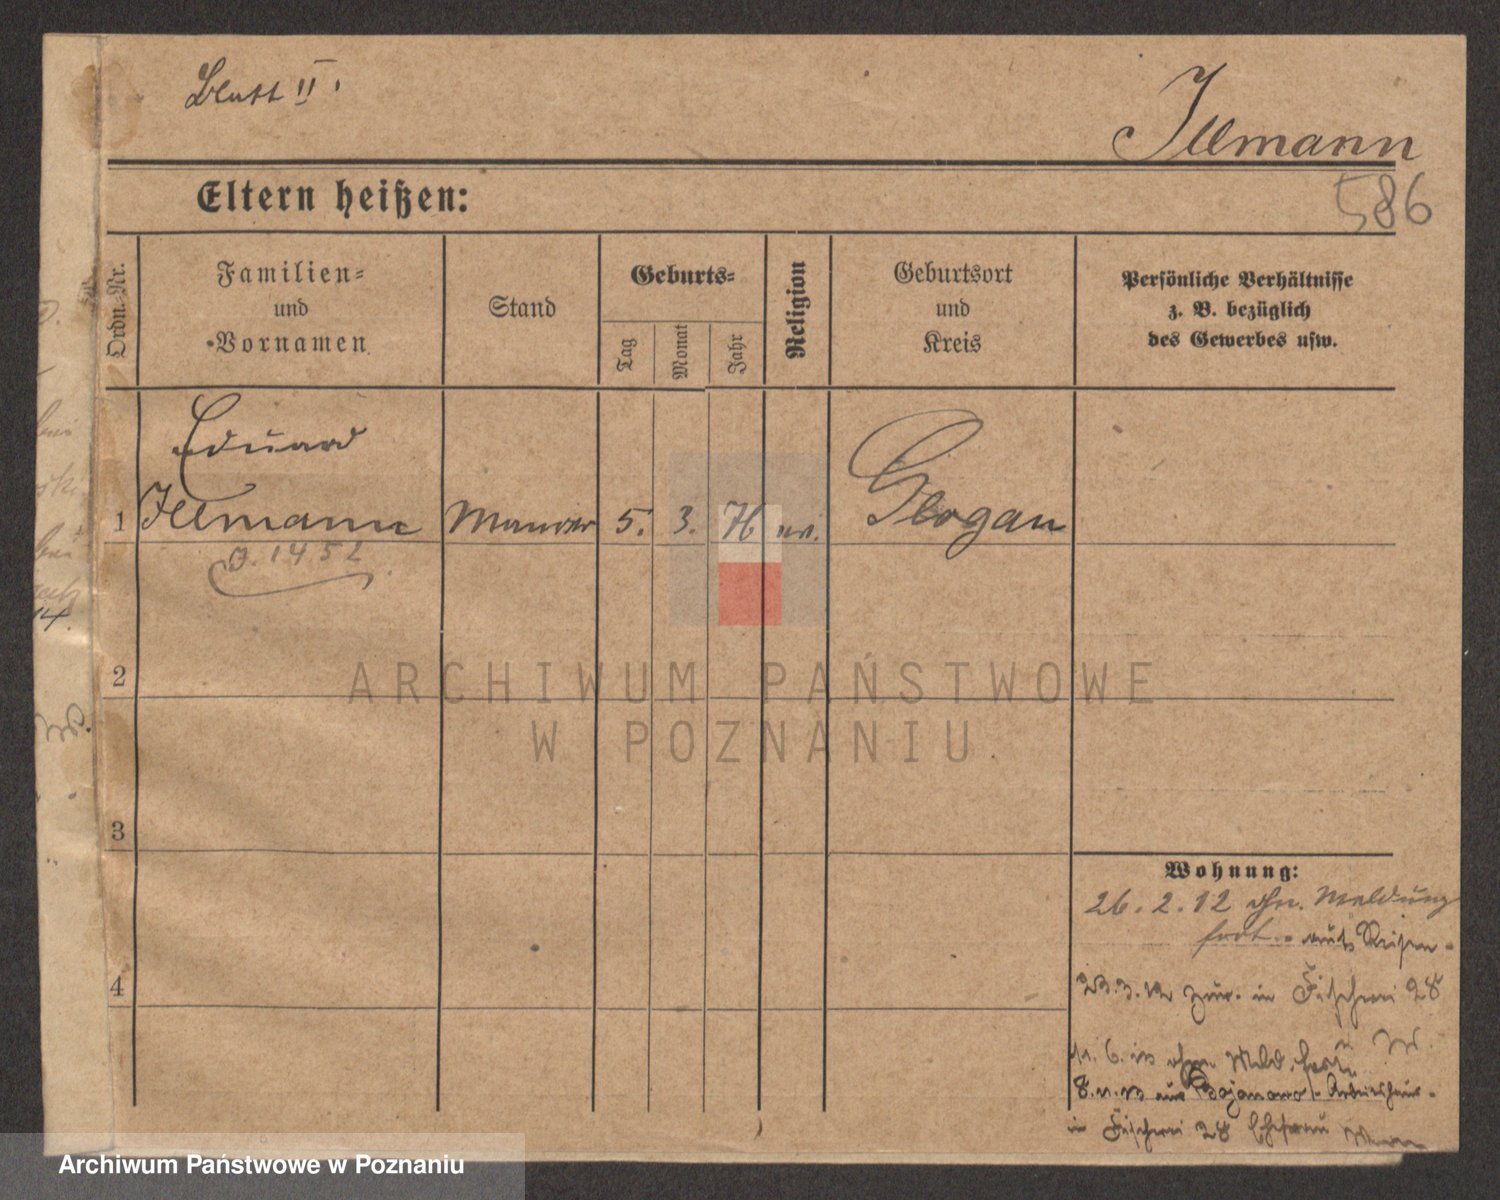 Blatt II.
Illmann
586
Eltern heißen:
Ordn.-Nr.
Familien-
und
Vornamen
Stand
Geburts-
Tag
Monat
Jahr
Religion
Geburtsort
und
Kreis
Persönliche Verhältnisse
z. B. bezüglich
des Gewerbes usw.
Eduard
1 Illmann Maurer 5. 3. Glogau
J. 1452
2
ARCHIWUM PAŃSTWOWE
W POZNANIU
3
Wohnung:
26. 2. 12 ohn. Meldung
fort. aufs Reisen
4
23. 3. 12 zur. in Fischerei 28
11. 6. ohne Meld. fort
8. 11. 13 aus Bojanowo Arbeitshaus
in Fischerei 28 Ehefrau
14.
Archiwum Państwowe w Poznaniu